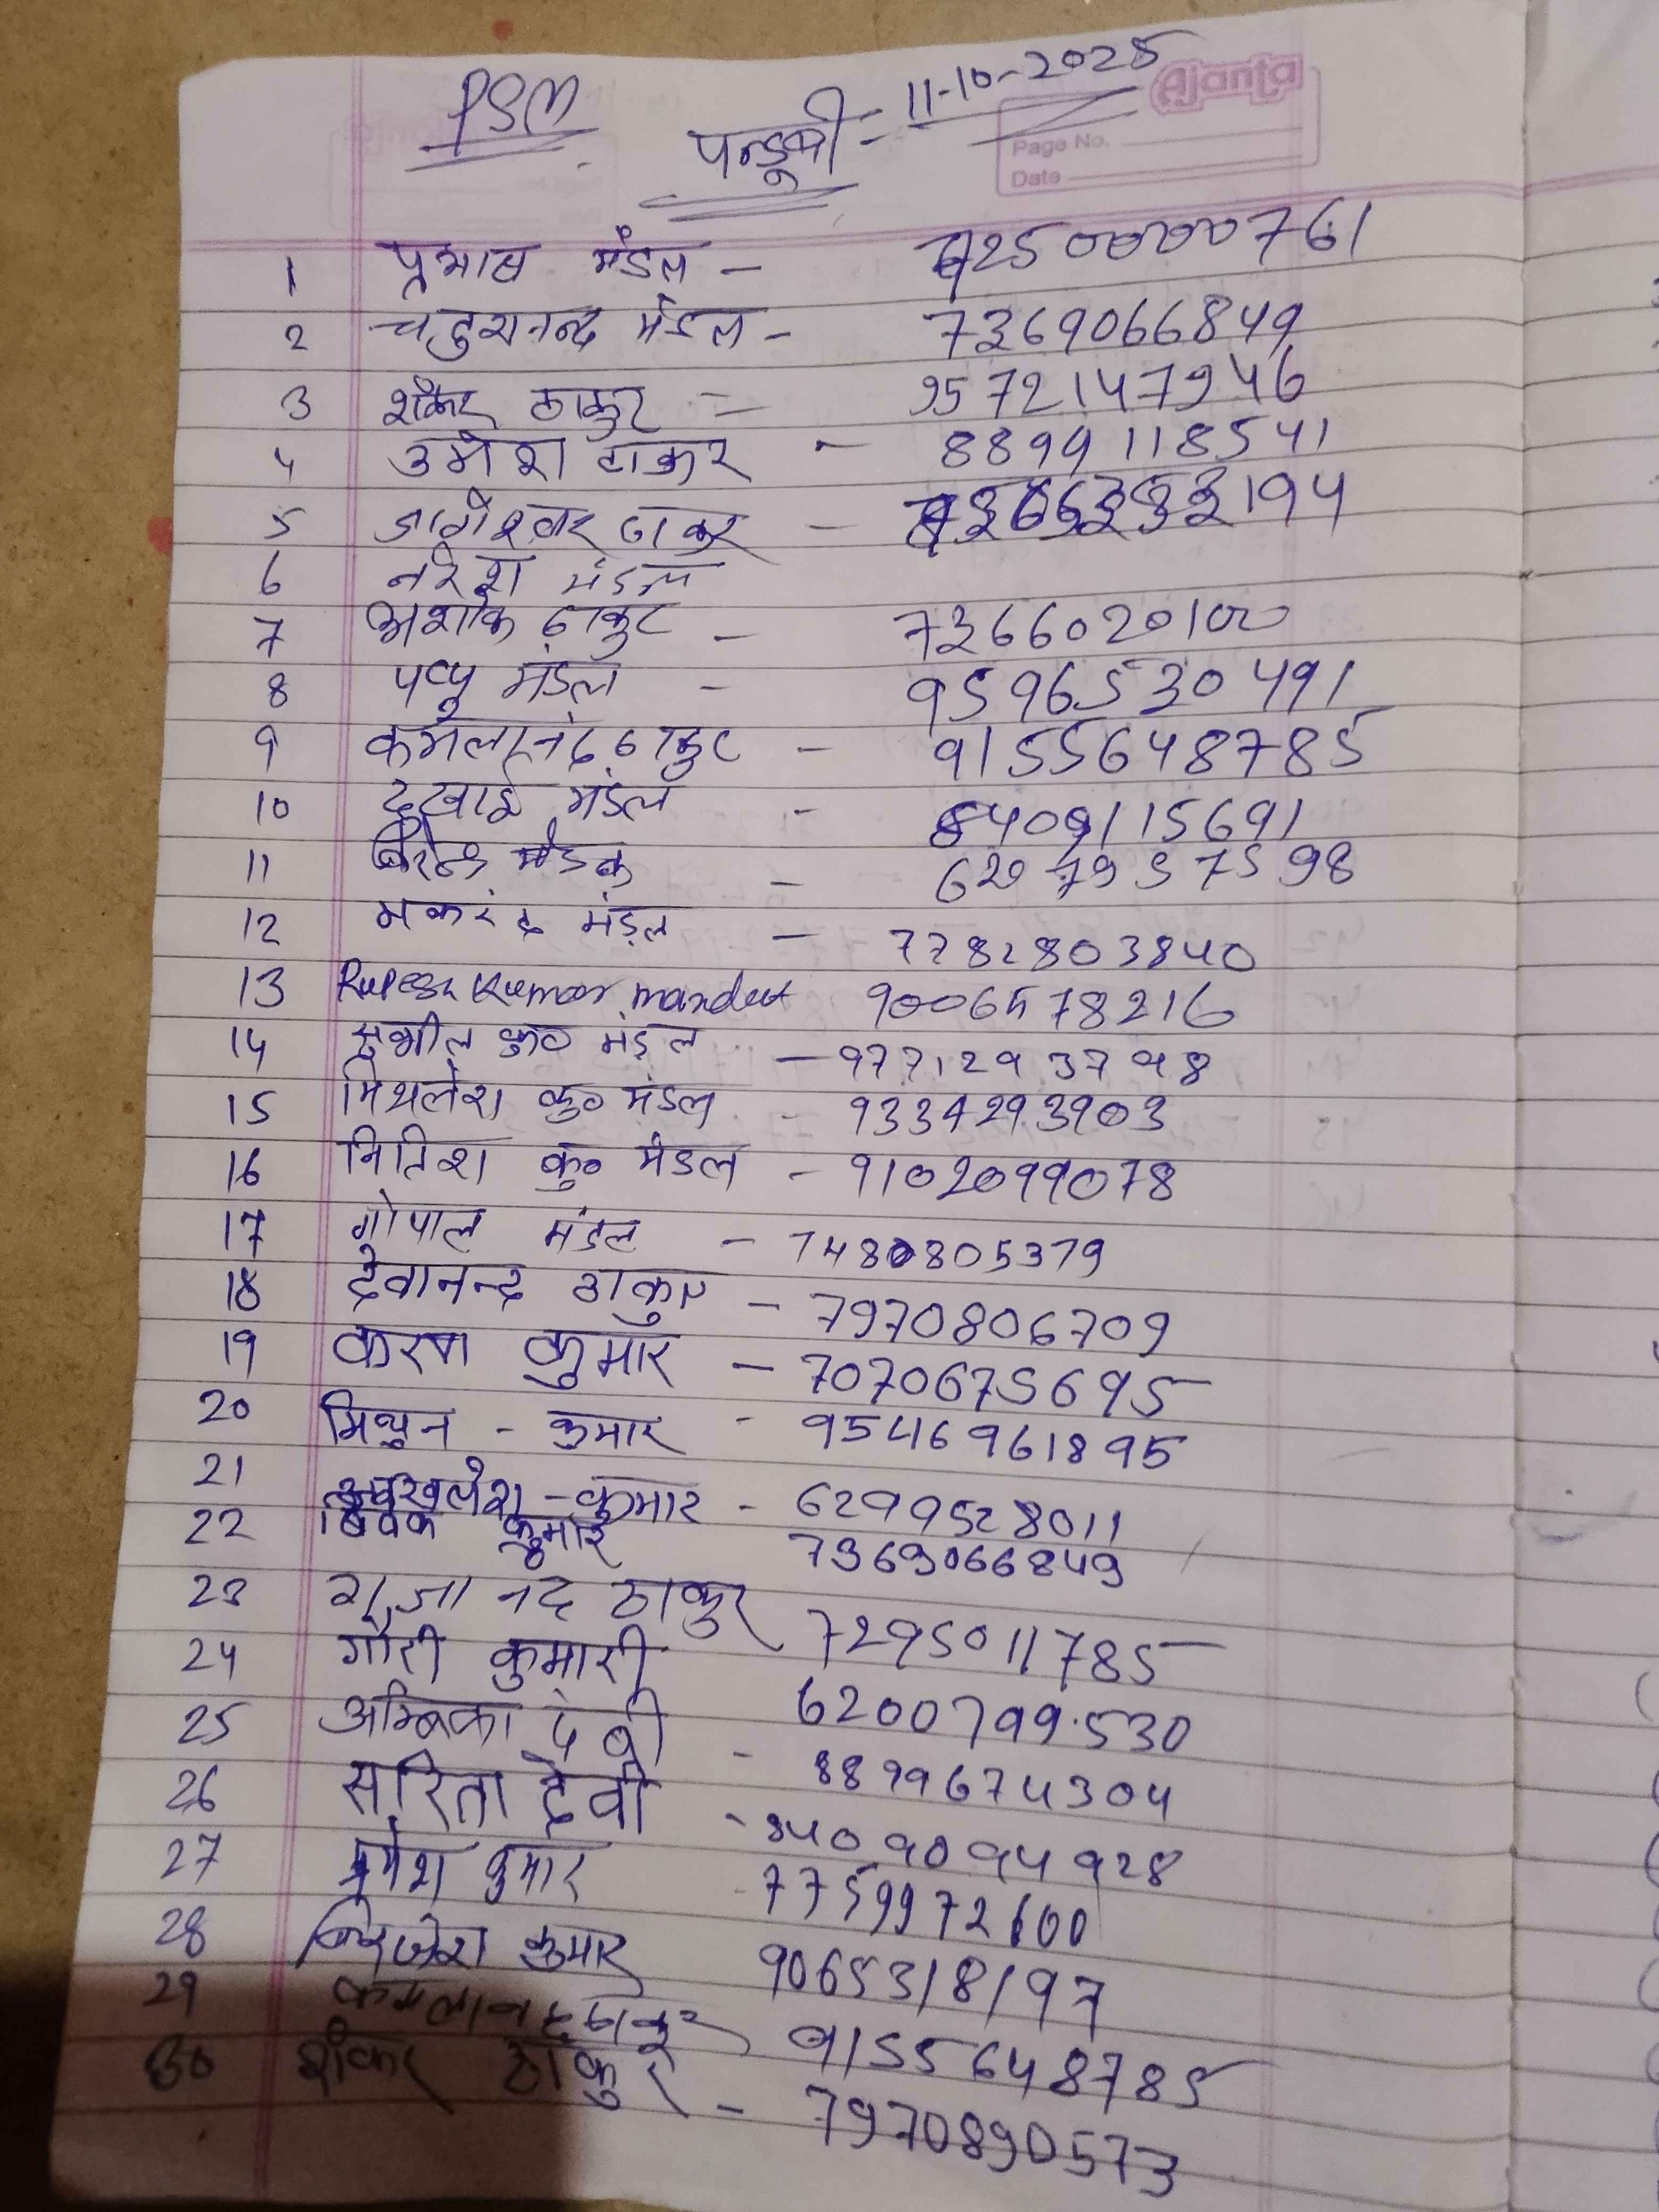 PSM
पन्डूबी = 11-10-2025
Ajanta
Page No.
Date
1 प्रभाष मंडल - 9250000761
2 चतुरानन्द मंडल - 7369066849
3 शंकर ठाकुर = 9572147946
4 उमेश ठाकुर - 8899118541
5 जागेश्वर ठाकुर -
6 नरेश मंडल
7 अशोक ठाकुर - 7366020100
8 पप्पु मंडल - 9596530491
9 कमलानंद ठाकुर - 9155648785
10 दुखाई मंडल - 8409115691
11 - 6207957598
12 मकरंद मंड़ल - 7782803840
13 Rupesh Kumar mandal 9006578216
14 सुशील कु० मंड़ल - 9771293798
15 मिथलेश कु० मंडल - 9334293903
16 नितिश कु० मंडल - 9102099078
17 गोपाल मंडल - 7480805379
18 देवानन्द ठाकुर - 7970806709
19 करण कुमार - 7070675695
20 मिथुन - कुमार - 9546961895
21 अखलेश - कुमार - 6299528011
22 बिवेक कुमार 7369066849
23 राजानंद ठाकुर 7295011785
24 गौरी कुमारी 6200799530
25 अम्बिका देवी - 8899674304
26 सरिता देवी - 8409094928
27 कुमार - 7759972600
28 कुमार 9065318197
29 कमलानन्द ठाकुर 9155648785
30 शंकर ठाकुर - 7970890573